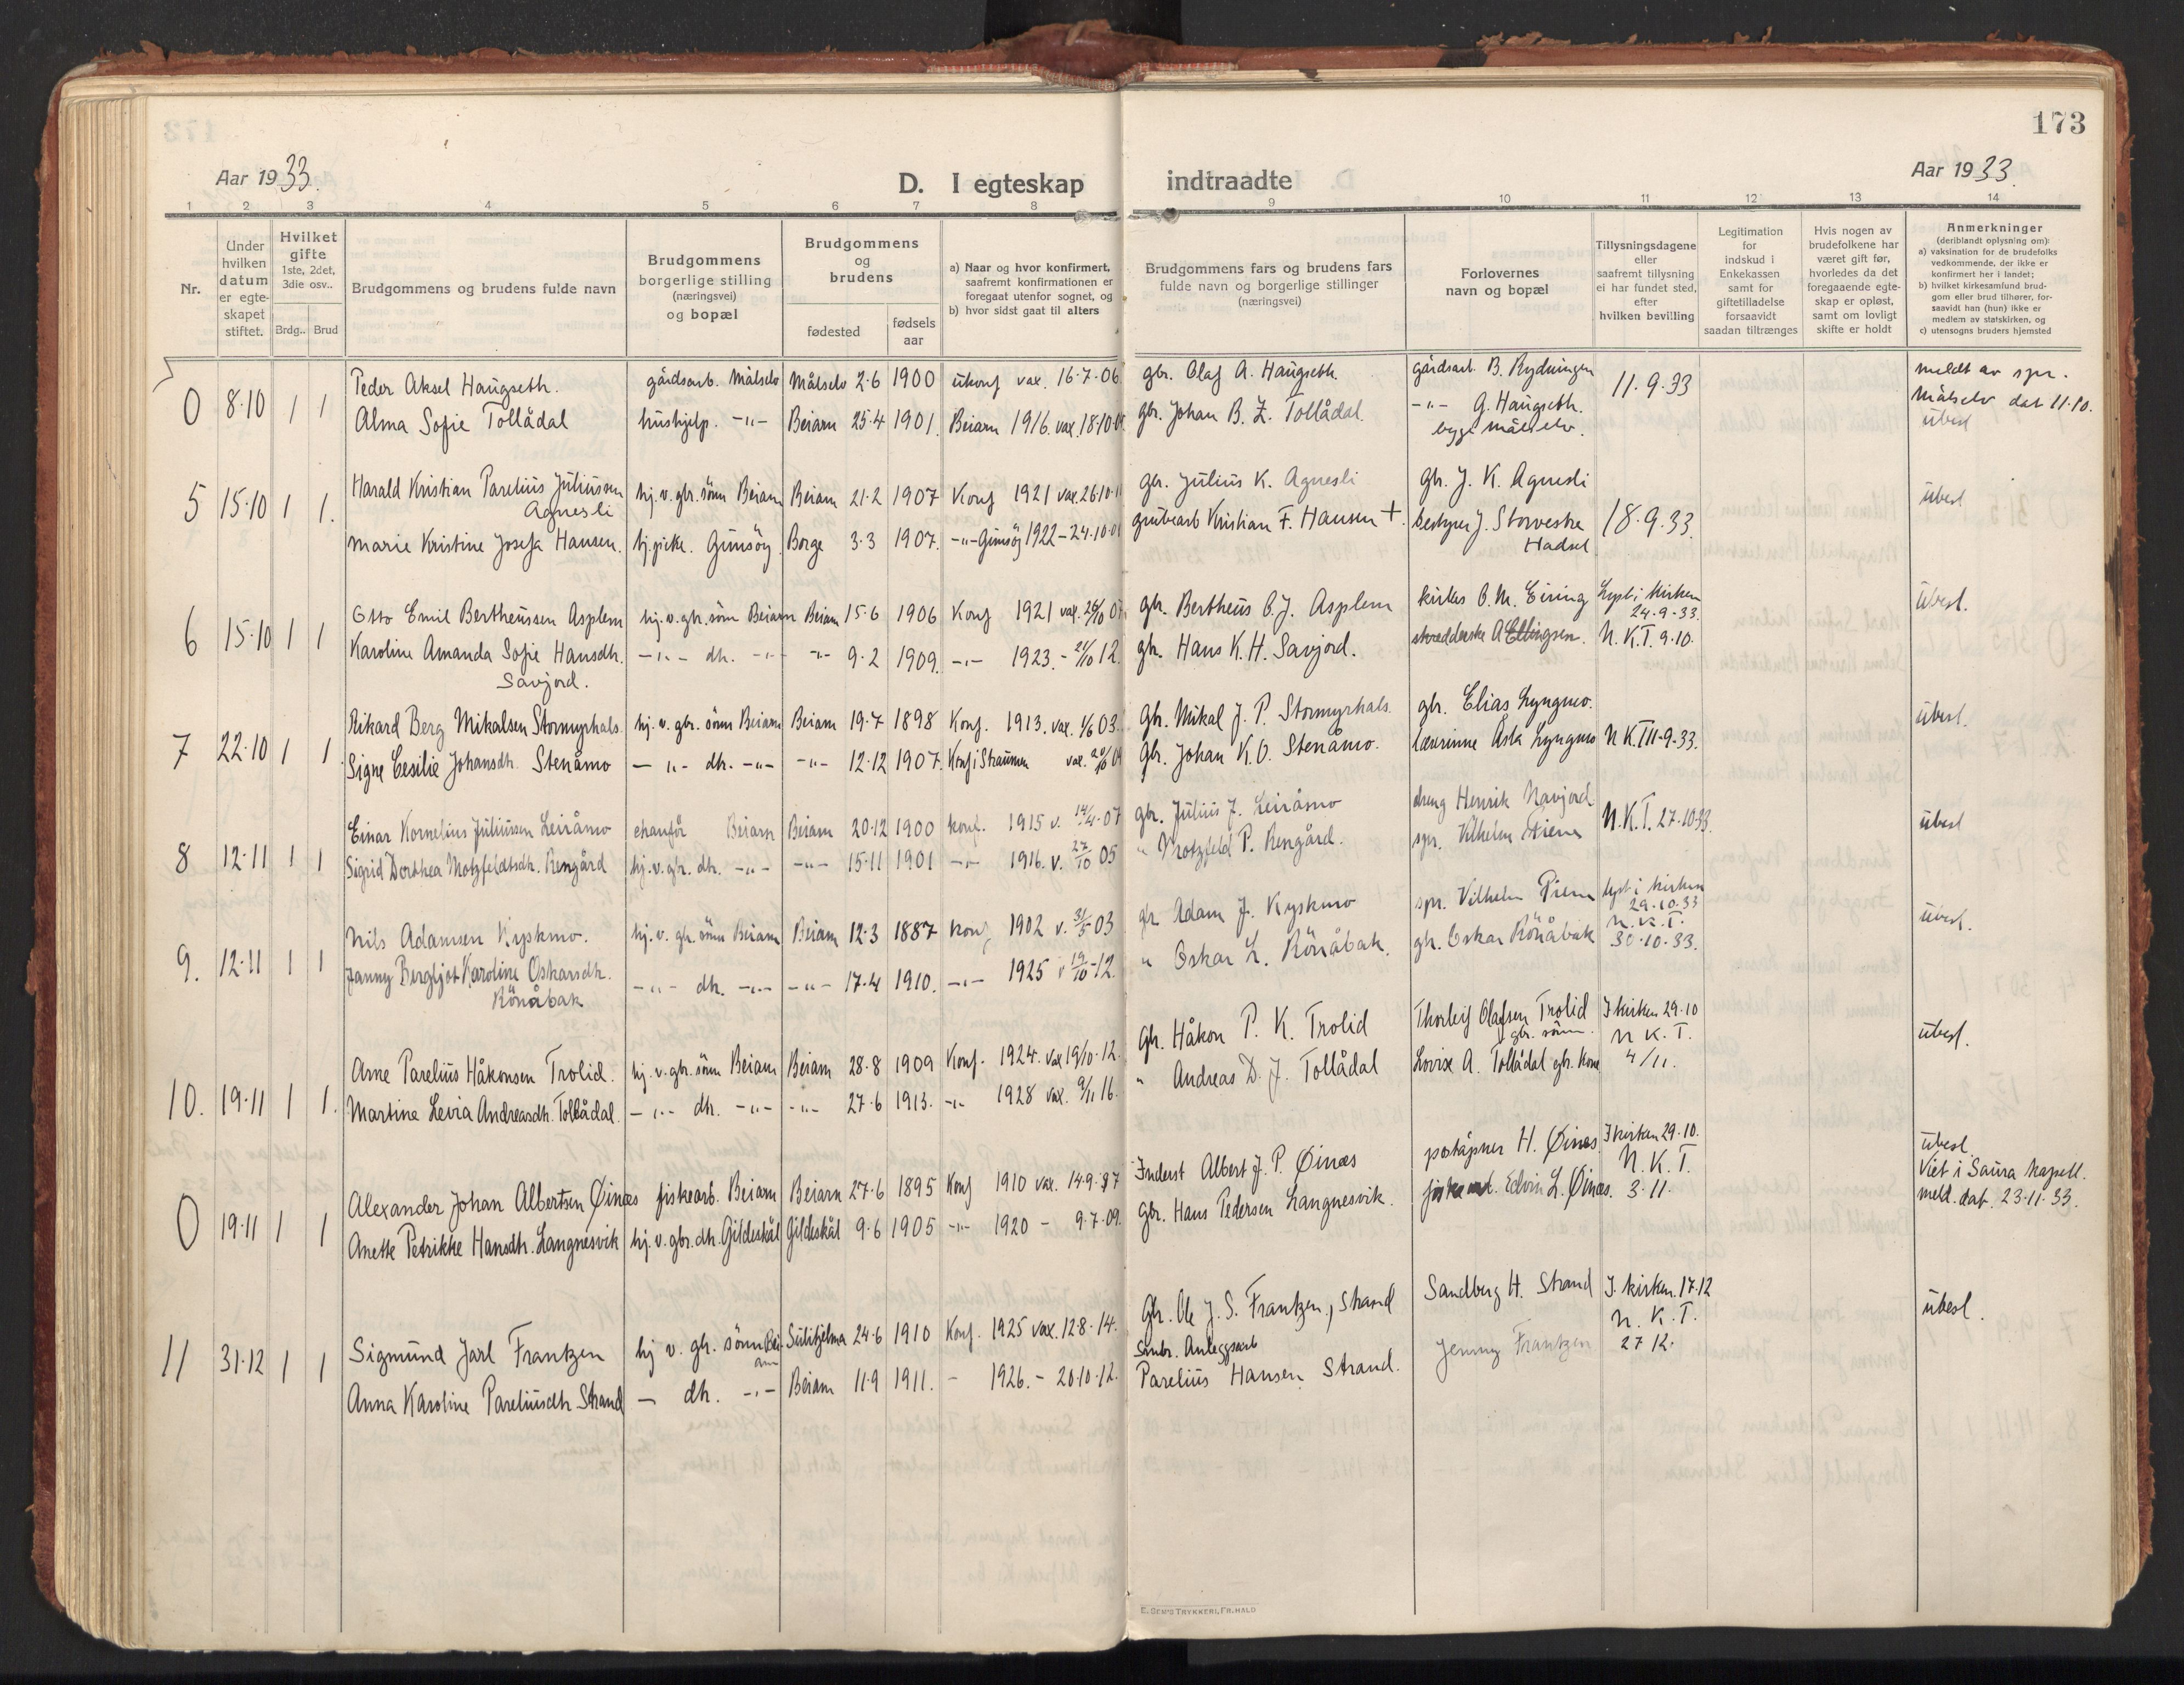 173
Aar 1933.
D. I egteskap indtraadte
Aar 1933.
1 2 3 4 5 6 7 8 9 10 11 12 13 14
Nr.
Under hvilken datum er egteskapet stiftet.
Hvilket gifte 1ste, 2det, 3die osv..
Brdg.. Brud
Brudgommens og brudens fulde navn
Brudgommens borgerlige stilling (næringsvei) og bopæl
Brudgommens og brudens
fødested
fødsels aar
a) Naar og hvor konfirmert, saafremt konfirmationen er foregaat utenfor sognet, og
b) hvor sidst gaat til alters
Brudgommens fars og brudens fars fulde navn og borgerlige stillinger (næringsvei)
Forlovernes navn og bopæl
Tillysningsdagene eller saafremt tillysning ei har fundet sted, efter hvilken bevilling
Legitimation for indskud i Enkekassen samt for giftetilladelse forsaavidt saadan tiltrænges
Hvis nogen av brudefolkene har været gift før, hvorledes da det foregaaende egteskap er opløst, samt om lovligt skifte er holdt
Anmerkninger
(deriblandt oplysning om):
a) vaksination for de brudefolks vedkommende, der ikke er konfirmert her i landet;
b) hvilket kirkesamfund brudgom eller brud tilhører, forsaavidt han (hun) ikke er medlem av statskirken, og
c) utensogns bruders hjemsted
0 8.10 1 1
Peder Aksel Haugseth. gårdsarb. Målselv Målselv 2.6 1900 ukonf vax. 16.7.06 gbr. Olaf A. Haugseth. gårdsarb. B. Rydningen 11.9.33 meldt av spr.
Alma Sofie Tollådal hushjelp. -"- Beiarn 25.4 1901. Beiarn 1916. vax. 18.10.09 gbr. Johan B. Z. Tollådal. -"- G. Haugseth. Målselv dat 11.10.
begge målselv. ubesl
5 15.10 1 1.
Harald Kristian Parelius Juliussen Agnesli hj.v. gbr. sønn Beiarn Beiarn 21.2 1907 Konf 1921 vax. 26.10.11 gbr. Julius K. Agnesli gbr. J. K. Agnesli 18.9.33. ubesl
Marie Kristine Josefa Hansen. hj. pike. Gimsøy Borge 3.3 1907. -"- Gimsøy 1922 - 24.10.01 grubearb Kristian F. Hansen +. bestyrer J. Storveske Hadsel
6 15.10 1 1
Otto Emil Bertheussen Asplem hj.v. gbr. sønn Beiarn Beiarn 15.6 1906 Konf 1921 vax. 26/10 07 gbr. Bertheus O. J. Asplem O. M. Eiring Lyst i kirken 24.9.33. ubesl.
Karoline Amanda Sofie Hansdh. Savjord. -"- dh. -"- -"- 9.2 1909. -"- 1923. - 21/10 12. gbr. Hans K. H. Savjord. A Ellingsen. N. K. T. 9.10.
7 22.10 1 1.
Rikard Berg Mikalsen Stormyrhals hj.v. gbr. sønn Beiarn Beiarn 19.7 1898 Konf. 1913. vax. 1/6 03. gbr. Mikal J. P. Stormyrhals. gbr. Elias Lyngmo. N K. T 11.9.33. ubesl.
Signe Cesilie Johansdh. Stenåmo -"- dh. -"- -"- 12.12 1907. Konf i Straumen vax. 20/10 09 gbr. Johan K. O. Stenåmo. lærerinne Asta Lyngmo
8 12.11 1 1
Einar Kornelius Juliussen Leiråmo chauför Beiarn Beiarn 20.12 1900 konf. 1915 v. 14/4.07 gbr. Julius J. Leiråmo dreng Henrik Navjord N. K. T. 27.10.33. ubesl
Sigrid Dorthea Motzfeldtsdh. Rengård hj.v. gbr. dh. -"- -"- 15.11 1901 -"- 1916. v. 27/10 05 " Motzfeld P. Rengård. spr. Vilhelm Piene
9. 12.11 1 1
Nils Adamsen Kyskmo. hj. v. gbr. sønn Beiarn Beiarn 12.3 1887 Konf 1902 v. 31/5 03 gbr Adam J. Kyskmo spr. Vilhelm Piene lyst i kirken 29.10.33 ubesl.
Janny Bergljot Karoline Oskarsdh. Rönåbak -"- dh. -"- -"- 17.4 1910. -"- 1925 v 19/10-12. " Oskar L. Rönåbak. gbr. Oskar Rönåbak N. K. T. 30.10.33.
10. 19.11 1 1.
Arne Parelius Håkonsen Trolid. hj. v. gbr. sønn Beiarn Beiarn 28.8 1909 Konf. 1924. vax 19/10.12. gbr. Håkon P. K. Trolid Thorleif Olafsen Trolid gbr. sønn. I kirken 29.10 N. K. T. ubesl.
Martine Levia Andreasdh. Tollådal. -"- dh. -"- -"- 27.6 1913. -"- 1928 vax. 9/11 16. " Andreas D. J. Tollådal Lovise A. Tollådal gbr. kone 4/11.
0 19.11 1 1
Alexander Johan Albertsen Øines fiskearb. Beiarn Beiarn 27.6 1895 Konf 1910 vax. 14.9.97 Inderst Albert J. P. Øines poståpner H. Øines I kirken 29.10. N. K. T. ubesl. Viet i Saura kapell.
Anette Petrikke Hansdh. Langnesvik hj. v. gbr. dh. Gildeskål Gildeskål 9.6 1905 -"- 1920 - 9.7.09. gbr. Hans Pedersen Langnesvik. Edvin L. Øines. 3.11. meld. dat. 23.11.33.
11 31.12 1 1
Sigmund Jarl Frantzen hj v. gbr. sønn Beiarn Sulitjelma 24.6 1910 Konf. 1925 vax. 12.8.14. Gbr. Ole J. S. Frantzen, Strand Sandberg H. Strand I. kirken. 17.12 N. K. T. ubesl.
Anna Karoline Pareliusdh Strand - dh. -"- Beiarn 11.9 1911. - 1926. - 20.10.12. Anleggsarb Parelius Hansen Strand. Jenny Frantzen 27 12.
E. SEM'S TRYKKERI, FR.HALD